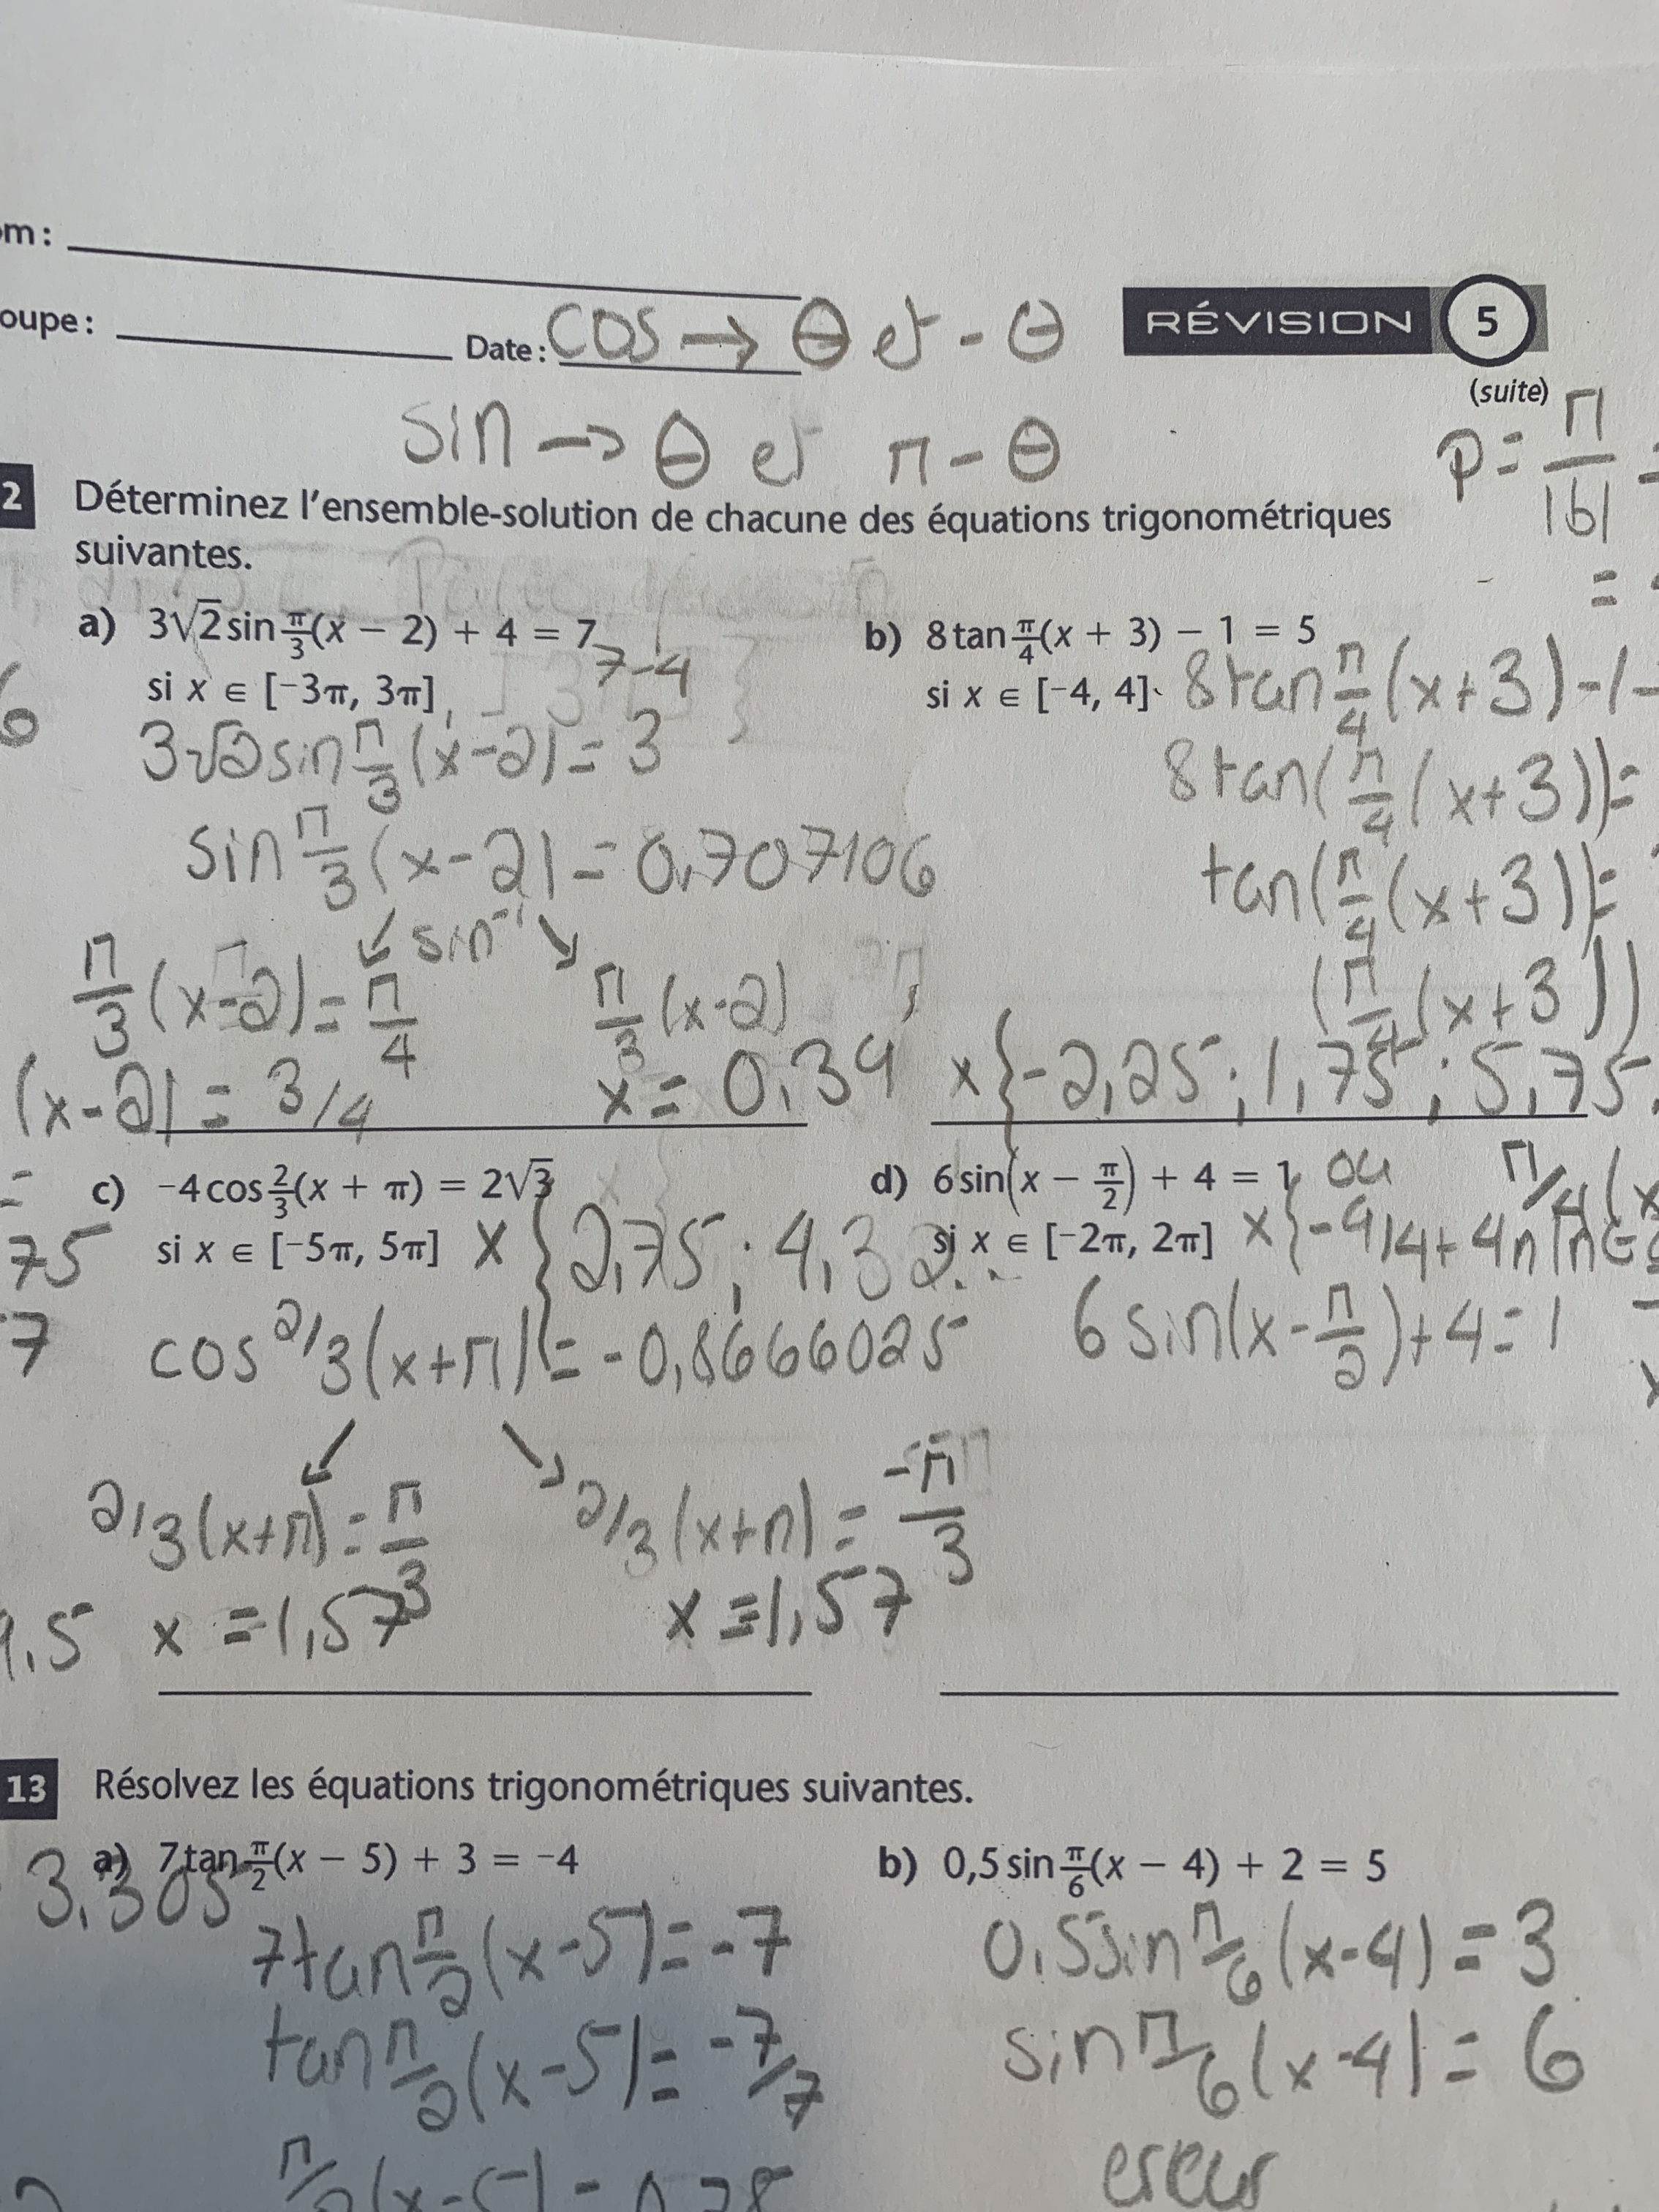 om :
oupe : Date : cos → θ et - θ
RÉVISION 5
(suite)
sin → θ et π - θ
P = π/|b|
=
2 Déterminez l'ensemble-solution de chacune des équations trigonométriques
suivantes.
a) 3√2 sin π/3(x − 2) + 4 = 7
7-4
si x ∈ [⁻3π, 3π]
6
3√2 sin π/3 (x-2) = 3
sin π/3 (x-2) = 0,707106
↙ sin⁻¹ ↘
π/3 (x-2) = π/4 π/3 (x-2)
(x-2) = 3/4 x = 0,34
b) 8 tan π/4(x + 3) − 1 = 5
si x ∈ [⁻4, 4]
8tan π/4 (x+3) -1
8tan(π/4 (x+3)) =
tan(π/4 (x+3)) =
(π/4 (x+3))
x{-2,25 ; 1,75 ; 5,75
c) ⁻4 cos 2/3(x + π) = 2√3
si x ∈ [⁻5π, 5π]
x{2,75 ; 4,32...
75
7
cos 2/3 (x+π) = -0,8666025
↙ ↘
2/3 (x+π) = π/3 2/3 (x+π) = -π/3
1.5 x = 1,57 x = 1,57
d) 6 sin(x − π/2) + 4 = 1
ou π/4 (x
si x ∈ [⁻2π, 2π]
x{-9/4 + 4n|n∈
6 sin(x - π/2) + 4 = 1
13 Résolvez les équations trigonométriques suivantes.
a) 7 tan π/2(x − 5) + 3 = ⁻4
3.305
7tan π/2 (x-5) = -7
tan π/2 (x-5) = -7/7
b) 0,5 sin π/6(x − 4) + 2 = 5
0.5sin π/6 (x-4) = 3
sin π/6 (x-4) = 6
ereur